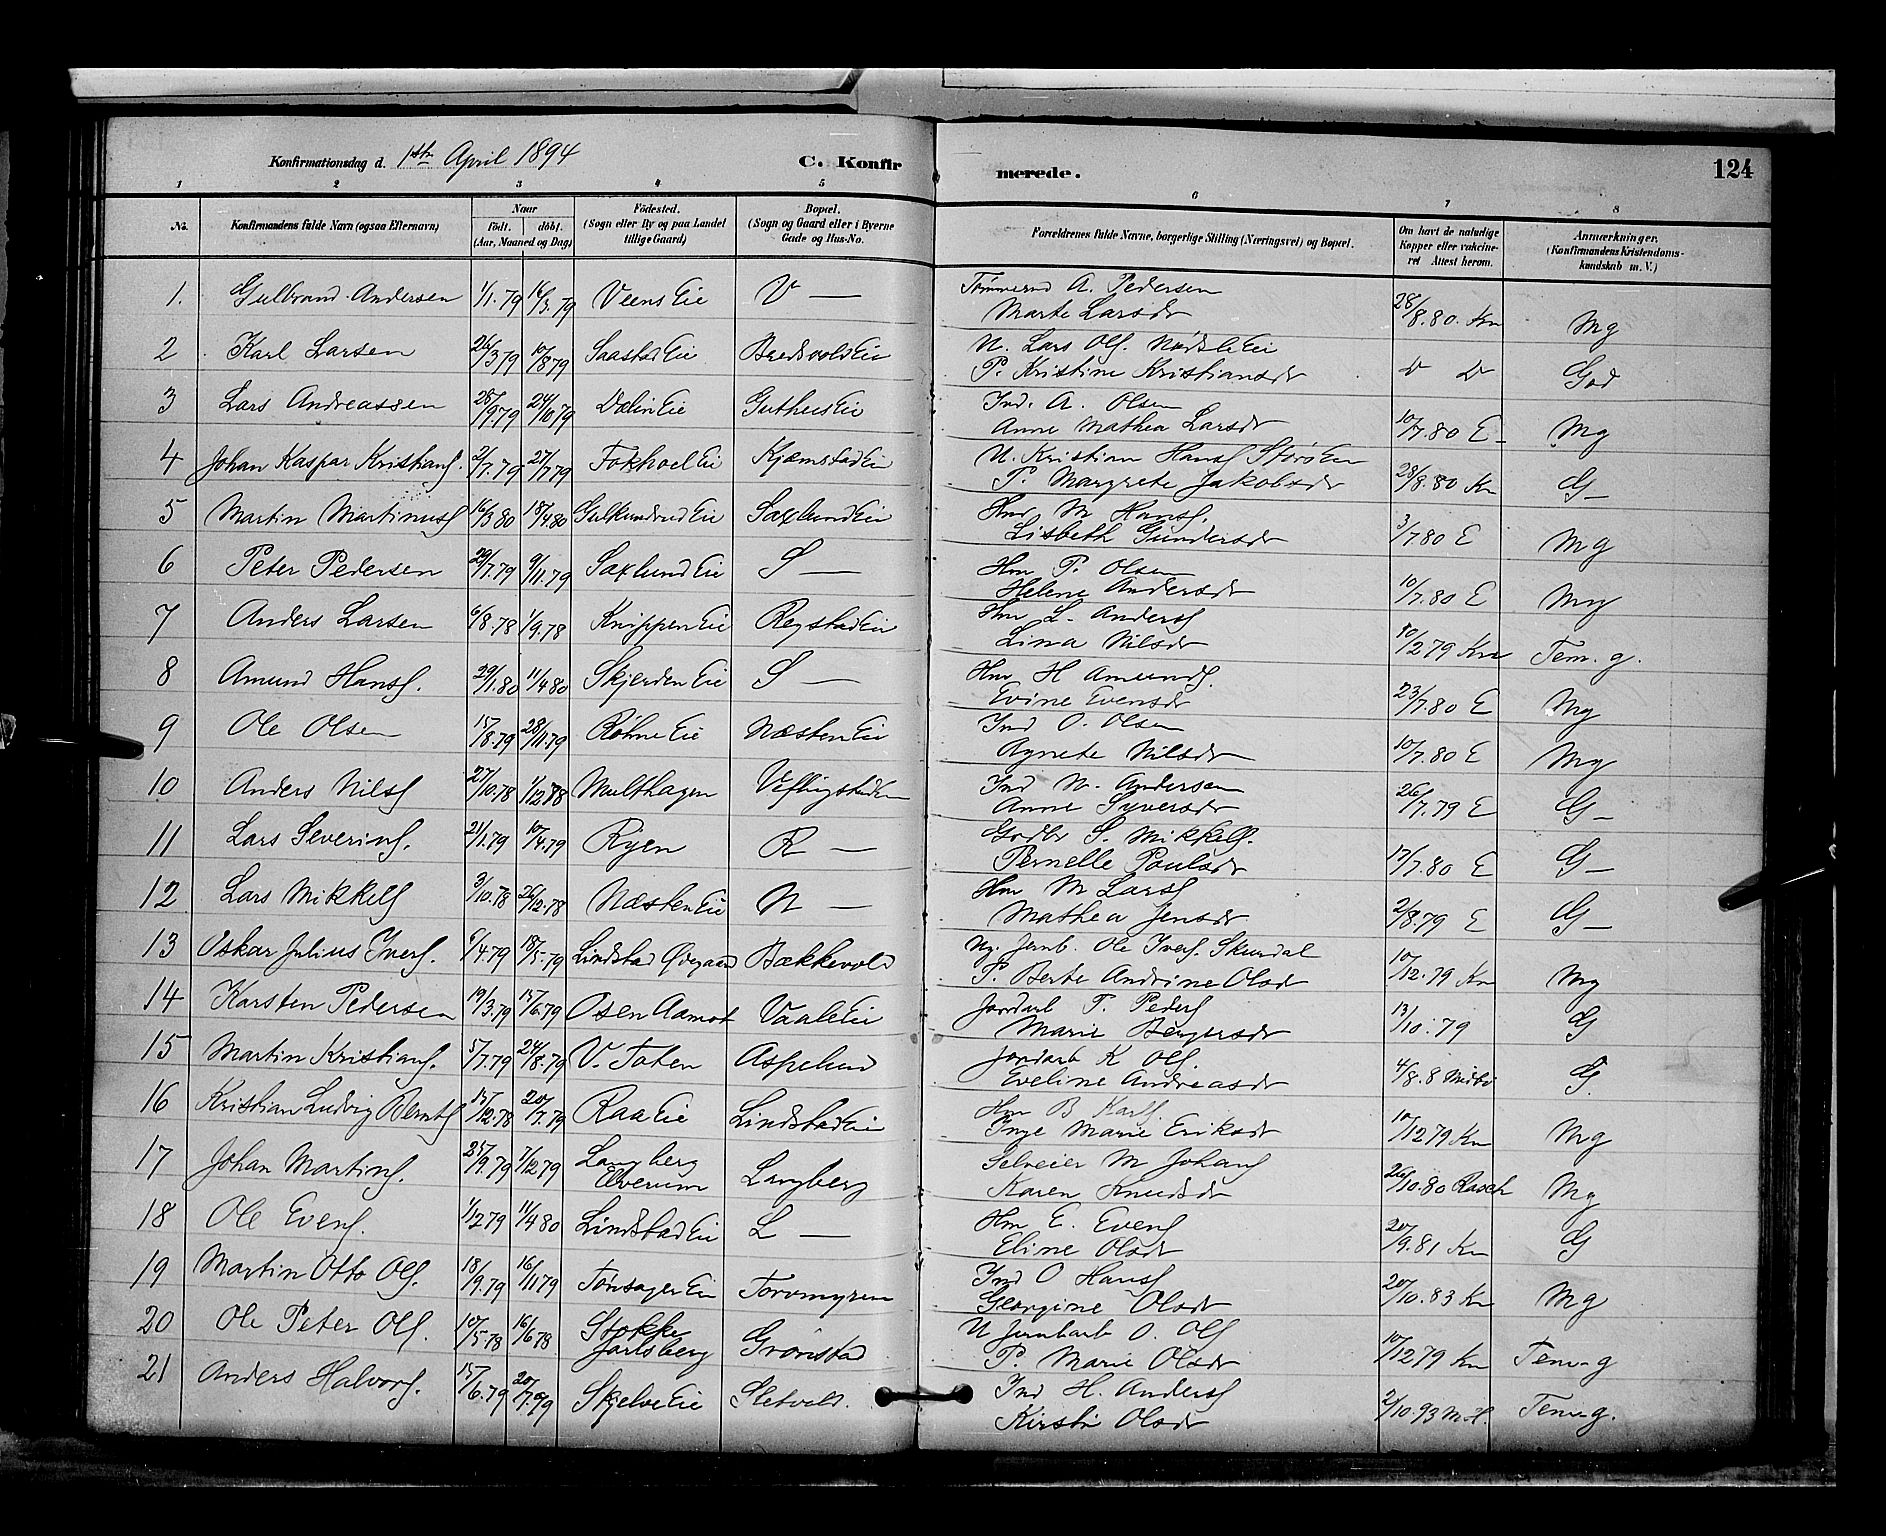 Konfirmationsdag d. 1ste April 1894
C. Konfir
merede.
124
1 2 3 4 5 6 7 8
No.
Konfirmandens fulde Navn (ogsaa Efternavn)
Naar
født. døbt.
(Aar, Maaned og Dag)
Fødested.
(Sogn eller By og paa Landet
tillige Gaard)
Bopæl.
(Sogn og Gaard eller i Byerne
Gade og Hus-No.
Forældrenes fulde Navne, borgerlige Stilling (Næringsvei) og Bopæl.
Om havt de naturlige
Kopper eller vakcine-
ret Attest herom.
Anmærkninger.
(Konfirmandens Kristendoms-
kundskab m. V.)
1. Gulbrand Andersen 1/1.79 16/3.79 Veens Eie V — Tømmermd A. Pedersen
Marte Larsdr 28/8.80. Kn Mg
2 Karl Larsen 26/3 79 10/8 79 Saastad Eie U. Lars Ols.
P. Kristine Kristiansdr God
3 Lars Andreassen 28/9.79 24/10.79 Dælin Eie Guthus Eie Ind. A. Olsen
Anne Mathea Larsdr 10/7.80 E Mg
4 Johan Kaspar Kristians. 2/7.79 27/7 79 Fokhol Eie Kjæmstad Eie U. Kristian Hans.
P. Margrete Jakobsdr 28/8.80 Kn G —
5 Martin Martinus. 16/3 80 18/4 80 Gulkundrud Eie Saxlund Eie Hmd M Hans.
Lisbeth Gundersdr 3/7.80 E Mg
6 Peter Pedersen 29/7.79 9/11.79 Saxlund Eie S — Hm P. Olsen
Helene Andersdr 10/7.80 E Mg
7 Anders Larsen 6/8.78 1/9.78 Knippen Eie Regstad Eie Hm L. Anders.
Lina Nilsdr 10/2 79 Kn Tem. g.
8 Amund Hans. 29/1.80 11/4 80 Skjerden Eie S — Hm H Amunds.
Evine Evensdr 23/7.80 E Mg
9 Ole Olsen 15/8.79 28/11.79 Røhne Eie Næsten Eie Ind O. Olsen
Agnete Nilsdr 10/7.80 E Mg
10 Anders Nils. 27/10.78 1/12 78 Multhagen Ind N. Andersen
Anne Syversdr 26/7.79 E G —
11 Lars Severins. 21/1.79 10/4.79 Ryen R — Gaardbr S. Mikkels.
Pernelle Paulsdr 17/7.80 E G —
12 Lars Mikkels. 3/10.78 26/12.78 Næsten Eie N — Hm M Lars.
Mathea Jensdr 2/8.79 E G —
13 Oskar Julius Ivers. 6/4.79 18/5.79 Lindstad Øvegaard Bækkevold Ug. Jernb. Ole Ivers. Skurdal
P. Berte Andrine Olsdr 10/12.79 Kn Mg
14 Karsten Pedersen 19/3.79 15/6.79 Osen Aamot Vaale Eie Jordarb P. Peders.
Marie Bergersdr 13/10.79 G
15 Martin Kristians. 5/7.79 24/8.79 V. Toten Aspelund Jordarb K Ols.
Eveline Andreasdr 4/8.8 G.
16 Kristian Ludvig Bernts. 15/12.78 20/7.79 Raa Eie Lindstad Eie Hm B Karls.
Inge Marie Eriksdr 10/12 79 Kn Mg
17 Johan Martins. 25/9.79 7/12 79 Langberg
Elverum Langberg Selveier M Johans.
Karen Knudsdr 26/10.80 Rasch Mg
18 Ole Evens. 1/2 79 11/4 80 Lindstad Eie L — Hm E. Evens.
Eline Olsdr 20/9.81 Kn G
19 Martin Otto Ols. 18/9.79 16/11 79 Tønsager Eie Torvmyren Ind O Hans.
Georgine Olsdr 20/10.83 Kn Mg
20 Ole Peter Ols. 10/5.78 16/6 78 Stokke
Jarlsberg Grønstad U Jernbarb O. Ols.
P. Marie Olsdr 10/12 79 Kn Tem. g
21 Anders Halvors. 15/6.79 20/7.79 Skjelve Eie Sletvold. Ind H. Anders.
Kirsti Olsdr 2/10.93 Tem. g.